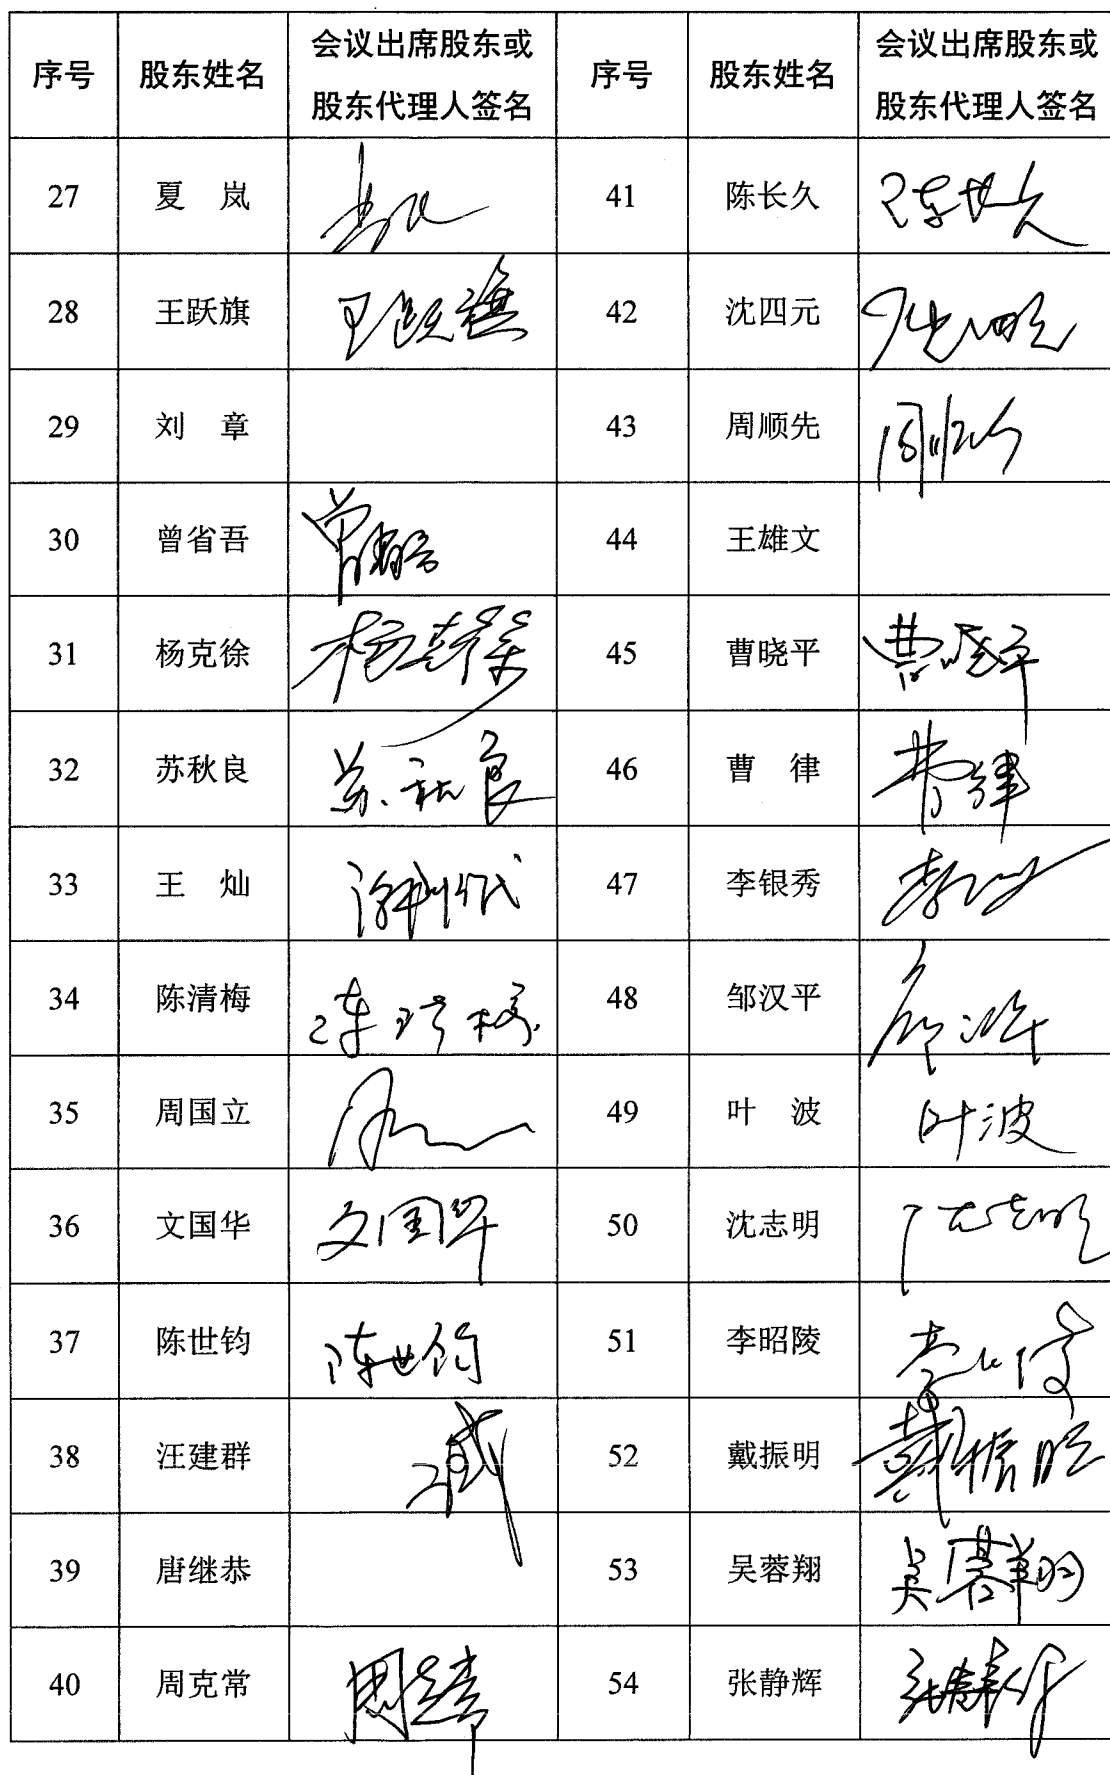 序号 股东姓名 会议出席股东或股东代理人签名 序号 股东姓名 会议出席股东或股东代理人签名
27 夏 岚 41 陈长久
28 王跃旗 王跃旗 42 沈四元
29 刘 章 43 周顺先
30 曾省吾 44 王雄文
31 杨克徐 杨克徐 45 曹晓平 曹晓平
32 苏秋良 苏秋良 46 曹 律 曹律
33 王 灿 47 李银秀
34 陈清梅 48 邹汉平
35 周国立 49 叶 波 叶波
36 文国华 文国华 50 沈志明
37 陈世钧 陈世钧 51 李昭陵
38 汪建群 52 戴振明 戴振明
39 唐继恭 53 吴蓉翔 吴蓉翔
40 周克常 54 张静辉